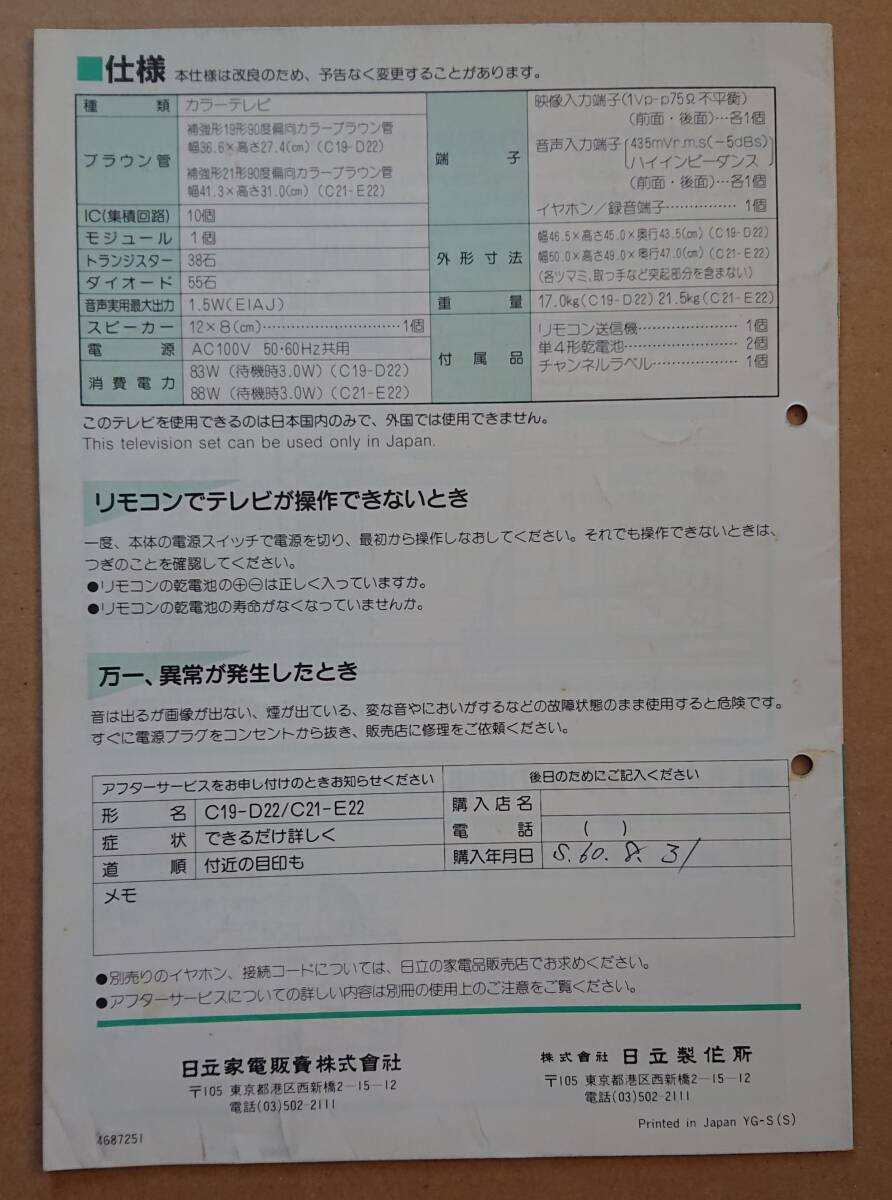 ■仕様 本仕様は改良のため、予告なく変更することがあります。
種類 カラーテレビ
ブラウン管
補強形19形90度偏向カラーブラウン管
幅36.6×高さ27.4(cm)(C19-D22)
補強形21形90度偏向カラーブラウン管
幅41.3×高さ31.0(cm)(C21-E22)
IC(集積回路) 10個
モジュール 1個
トランジスター 38石
ダイオード 55石
音声実用最大出力 1.5W(EIAJ)
スピーカー 12×8(cm)…………………………1個
電源 AC100V 50・60Hz共用
消費電力
83W(待機時3.0W)(C19-D22)
88W(待機時3.0W)(C21-E22)
端子
映像入力端子(1Vp-p75Ω不平衡)
(前面・後面)…各1個
音声入力端子 435mVr.m.s(-5dBs)
ハイインピーダンス
(前面・後面)…各1個
イヤホン/録音端子……………1個
外形寸法
幅46.5×高さ45.0×奥行43.5(cm)(C19-D22)
幅50.0×高さ49.0×奥行47.0(cm)(C21-E22)
(各ツマミ、取っ手など突起部分を含まない)
重量 17.0kg(C19-D22)21.5kg(C21-E22)
付属品
リモコン送信機…………………1個
単4形乾電池……………………2個
チャンネルラベル………………1個
このテレビを使用できるのは日本国内のみで、外国では使用できません。
This television set can be used only in Japan.
リモコンでテレビが操作できないとき
一度、本体の電源スイッチで電源を切り、最初から操作しなおしてください。それでも操作できないときは、
つぎのことを確認してください。
●リモコンの乾電池の⊕⊖は正しく入っていますか。
●リモコンの乾電池の寿命がなくなっていませんか。
万一、異常が発生したとき
音は出るが画像が出ない、煙が出ている、変な音やにおいがするなどの故障状態のまま使用すると危険です。
すぐに電源プラグをコンセントから抜き、販売店に修理をご依頼ください。
アフターサービスをお申し付けのときお知らせください
形名 C19-D22/C21-E22
症状 できるだけ詳しく
道順 付近の目印も
後日のためにご記入ください
購入店名
電話 ( )
購入年月日 S.60.8.31
メモ
●別売りのイヤホン、接続コードについては、日立の家電品販売店でお求めください。
●アフターサービスについての詳しい内容は別冊の使用上のご注意をご覧ください。
日立家電販賣株式會社
〒105 東京都港区西新橋2-15-12
電話(03)502-2111
株式會社 日立製作所
〒105 東京都港区西新橋2-15-12
電話(03)502-2111
Printed in Japan YG-S(S)
4687251